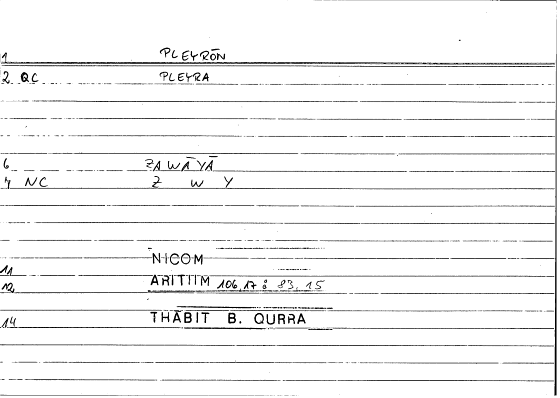 1 PLEYRŌN
2 QC PLEYRA
6 ZAWĀYĀ
7 NC Z W Y
NICOM
11
ARITIIM 106,17 : 83,15
12
14 THĀBIT B. QURRA